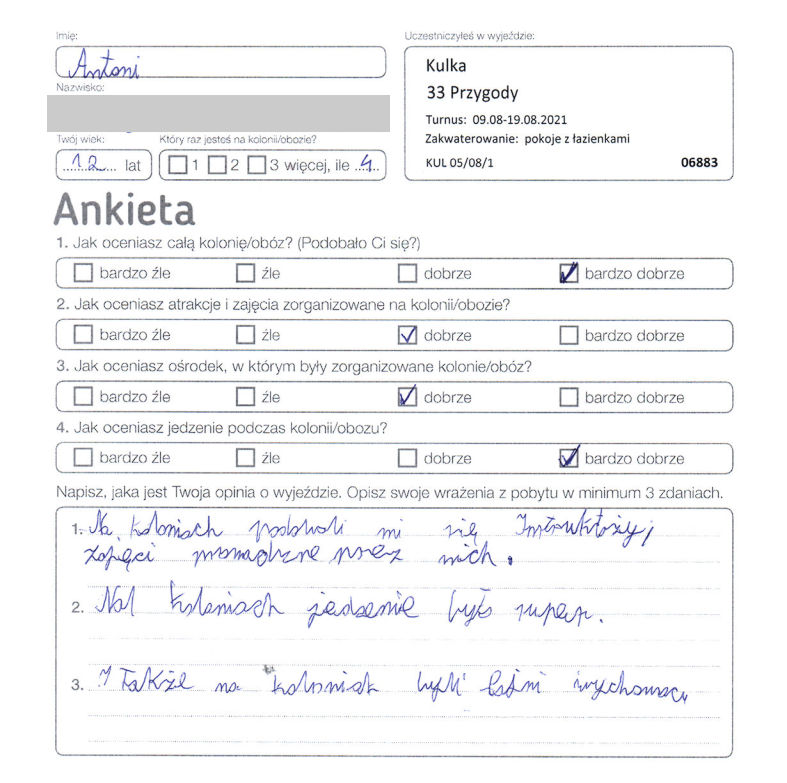 Imię:
Uczestniczyłeś w wyjeździe:
Antoni
Kulka
33 Przygody
Turnus: 09.08-19.08.2021
Zakwaterowanie: pokoje z łazienkami
KUL 05/08/1 06883
Nazwisko:
Twój wiek:
Który raz jesteś na kolonii/obozie?
12 lat
1 2 3 więcej, ile 4
Ankieta
1. Jak oceniasz całą kolonię/obóz? (Podobało Ci się?)
bardzo źle źle dobrze bardzo dobrze
2. Jak oceniasz atrakcje i zajęcia zorganizowane na kolonii/obozie?
bardzo źle źle dobrze bardzo dobrze
3. Jak oceniasz ośrodek, w którym były zorganizowane kolonie/obóz?
bardzo źle źle dobrze bardzo dobrze
4. Jak oceniasz jedzenie podczas kolonii/obozu?
bardzo źle źle dobrze bardzo dobrze
Napisz, jaka jest Twoja opinia o wyjeździe. Opisz swoje wrażenia z pobytu w minimum 3 zdaniach.
1. Na koloniach podobali mi się
przez nich.
2. Na koloniach jedzenie było super.
3. I także na byli